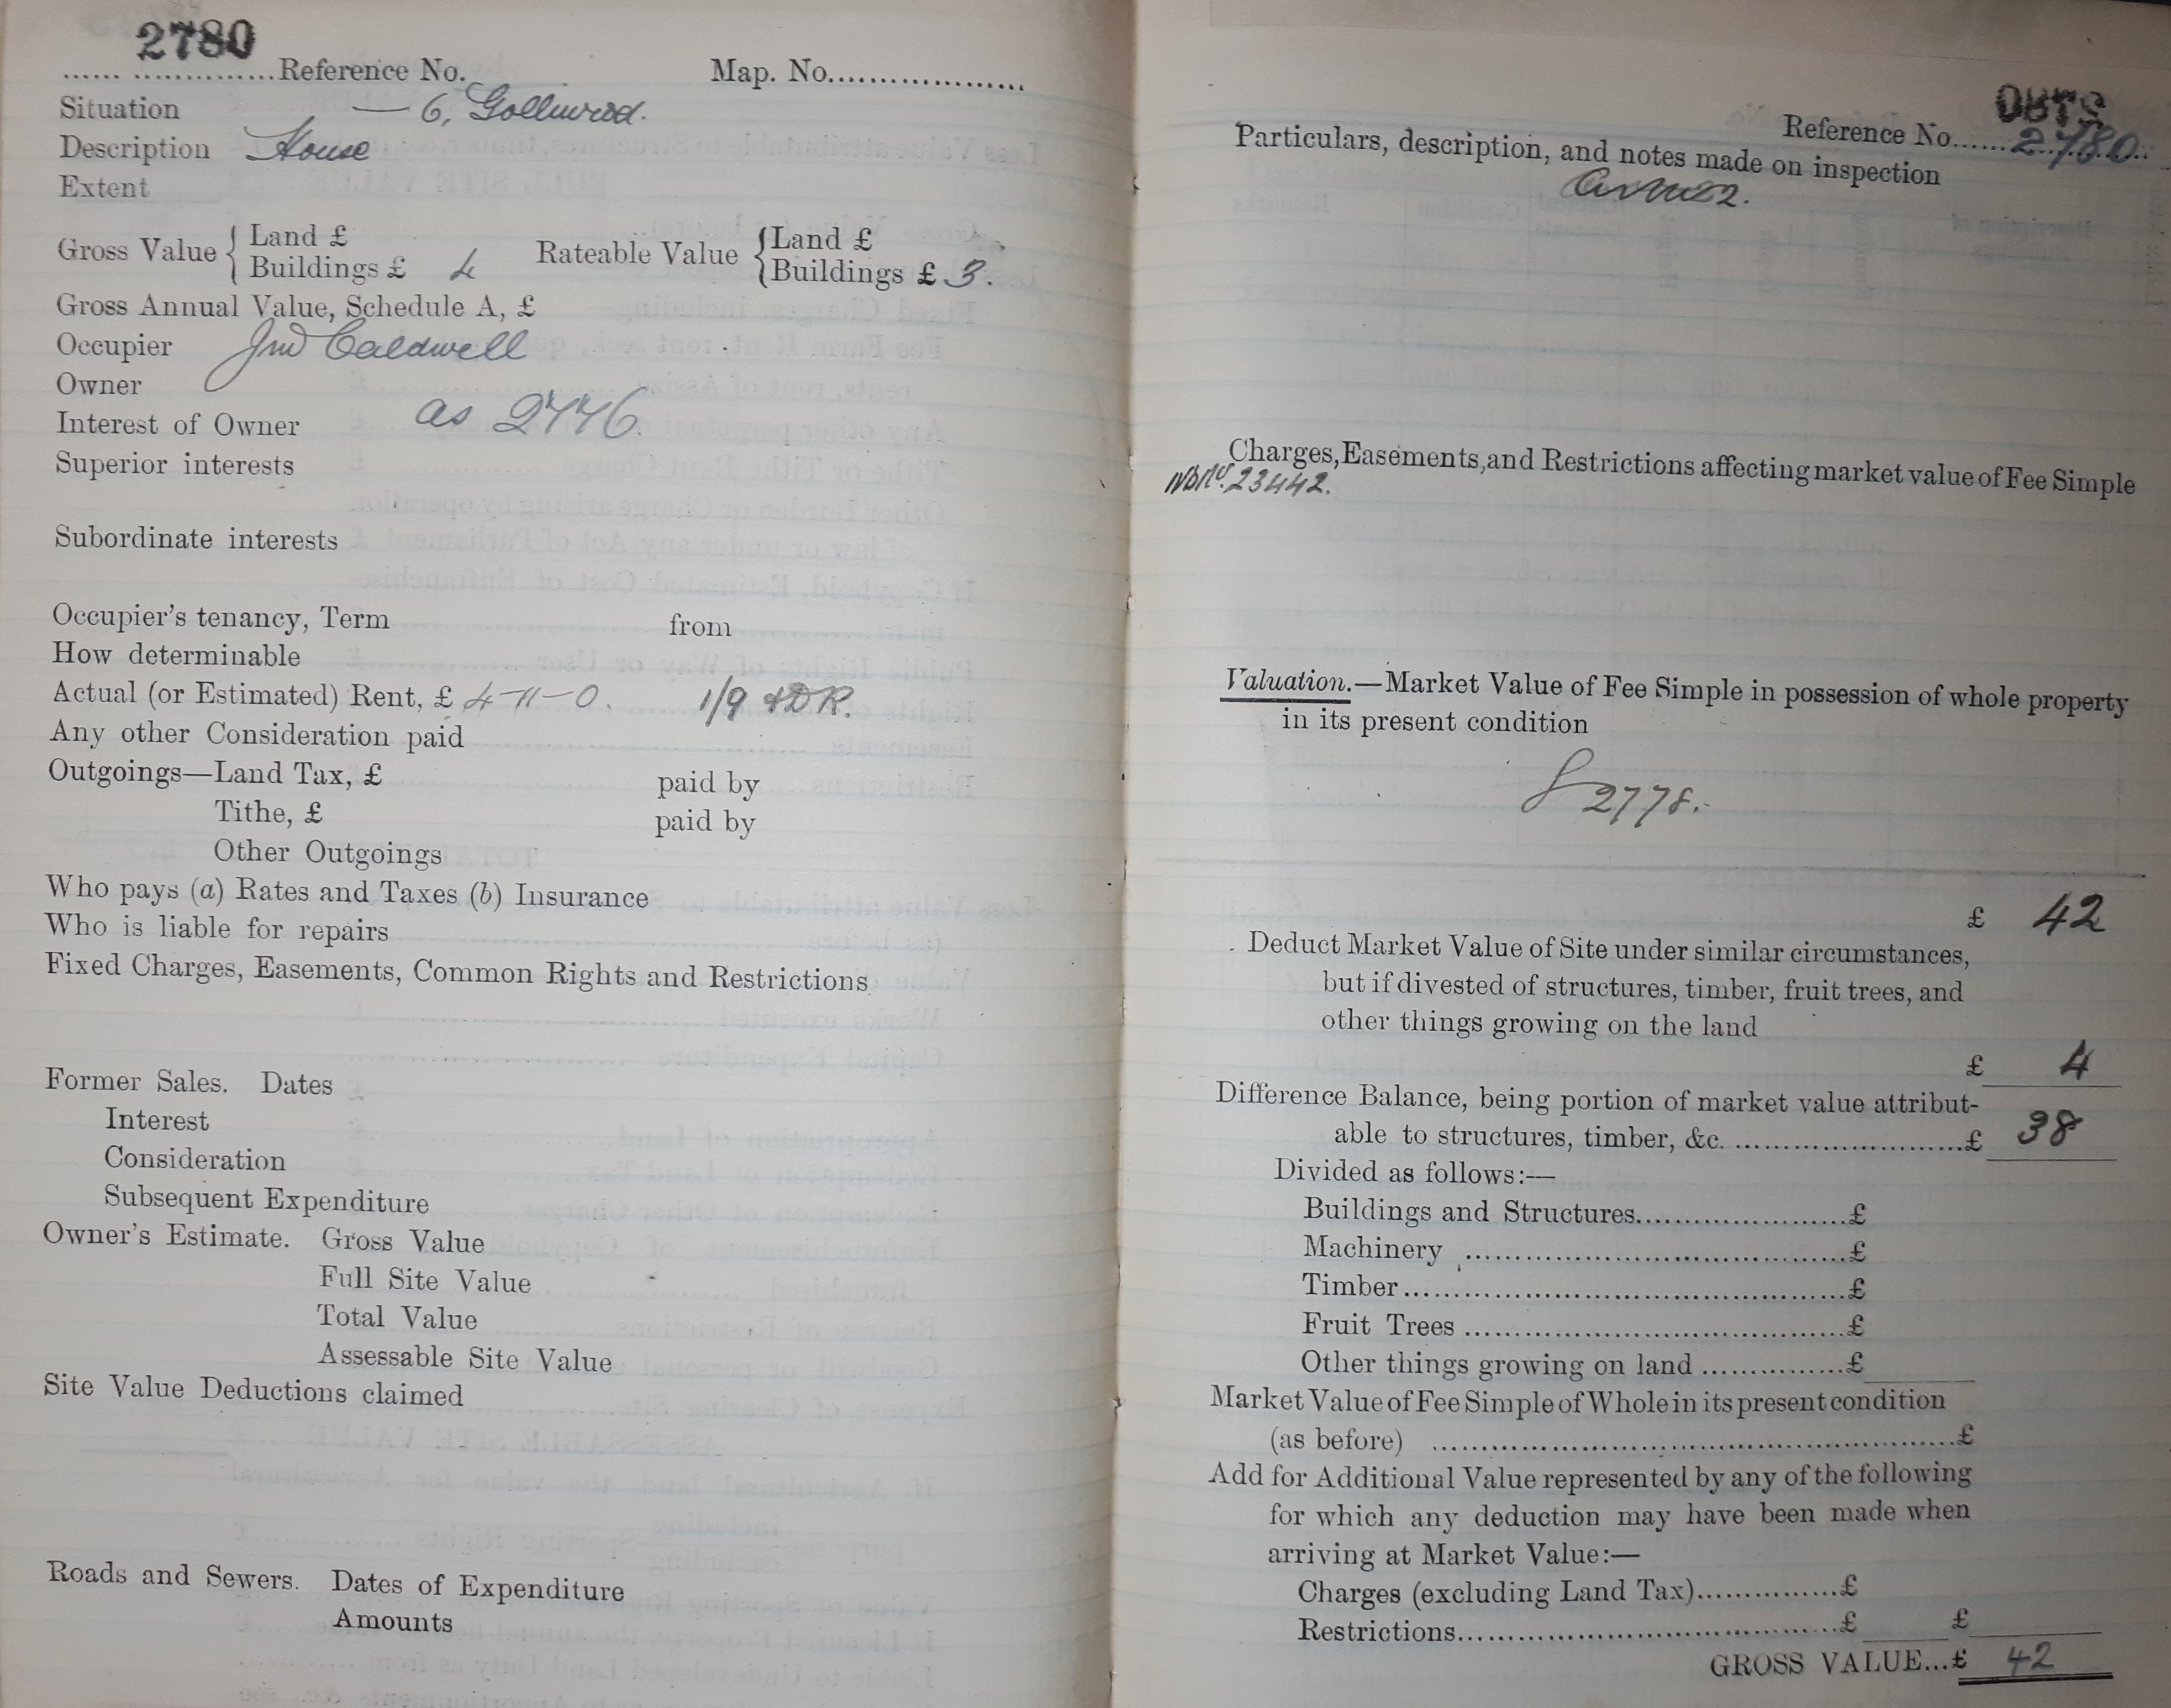 2780
Reference No. Map. No.....................
Situation — 6, Gollinrod.
Description House
Extent
Gross Value { Land £ Rateable Value { Land £
Buildings £ 4 Buildings £ 3.
Gross Annual Value, Schedule A, £
Occupier Jno Caldwell
Owner
Interest of Owner as 2776.
Superior interests
Subordinate interests
Occupier's tenancy, Term from
How determinable
Actual (or Estimated) Rent, £ 4-11-0. 1/9 &DR.
Any other Consideration paid
Outgoings—Land Tax, £ paid by
Tithe, £ paid by
Other Outgoings
Who pays (a) Rates and Taxes (b) Insurance
Who is liable for repairs
Fixed Charges, Easements, Common Rights and Restrictions
Former Sales. Dates
Interest
Consideration
Subsequent Expenditure
Owner's Estimate. Gross Value
Full Site Value
Total Value
Assessable Site Value
Site Value Deductions claimed
Roads and Sewers. Dates of Expenditure
Amounts
Reference No......2780
Particulars, description, and notes made on inspection
Charges, Easements, and Restrictions affecting market value of Fee Simple
23442.
Valuation.—Market Value of Fee Simple in possession of whole property
in its present condition
2778.
£ 42
Deduct Market Value of Site under similar circumstances,
but if divested of structures, timber, fruit trees, and
other things growing on the land
£ 4
Difference Balance, being portion of market value attribut-
able to structures, timber, &c. ........................£ 38
Divided as follows:—
Buildings and Structures.....................£
Machinery .....................................£
Timber.........................................£
Fruit Trees ....................................£
Other things growing on land ..............£
Market Value of Fee Simple of Whole in its present condition
(as before) ..................................................£
Add for Additional Value represented by any of the following
for which any deduction may have been made when
arriving at Market Value:—
Charges (excluding Land Tax)..............£
Restrictions......................................£ £
GROSS VALUE...£ 42